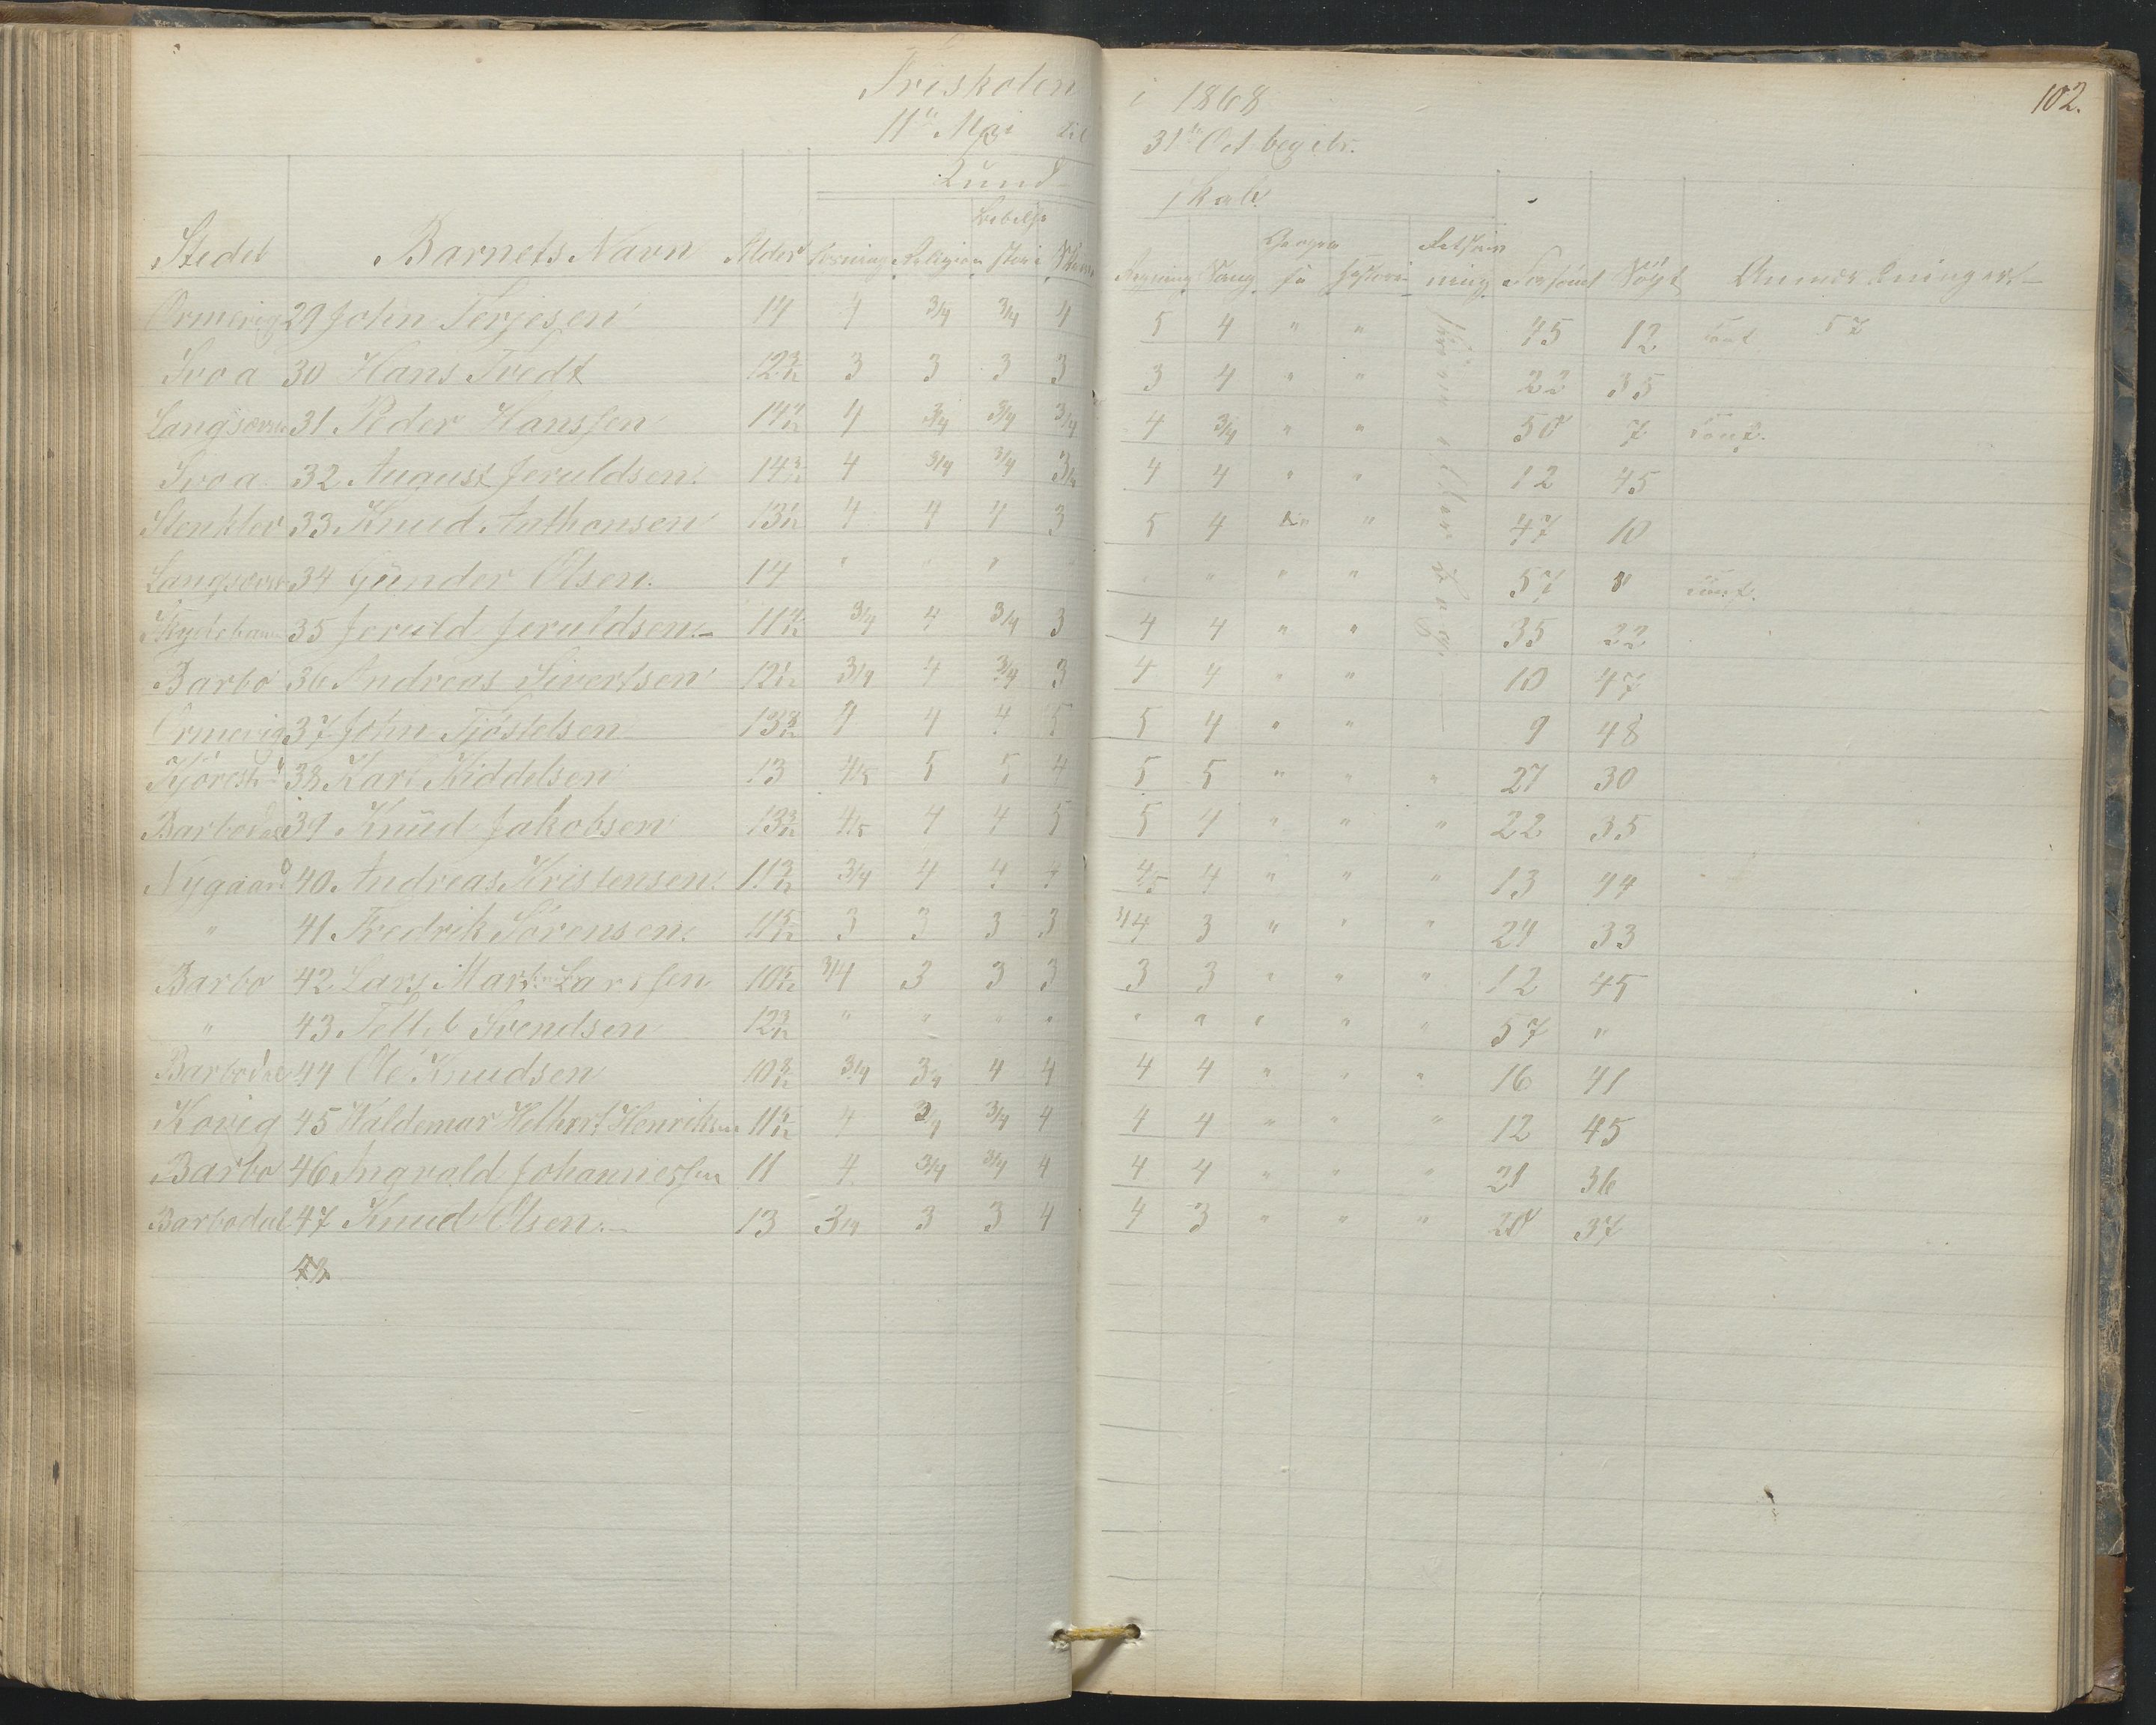 Friskolen i 1868 102.
11te Mai til 31te Oct begge ib.
Kund- skab
Stedet Barnets Navn Alder Læsning Religion Bibelhistorie Regning Sang Geografi Historie Retskrivning Forsømt Søgt Anmærkninger.
Ormevig 29 John Terjesen 14 4 3/4 3/4 4 5 4 " " 45 12 Conf 57
Svoa 30 Hans Tvedt 12 3/12 3 3 3 3 3 4 " " 22 35
Langsæv 31 Peder Hanssen 4 3/4 3/4 3/4 4 3/4 " " 50 7 Conf.
Svoa 32 August Jeruldsen 4 3/4 3/4 4 4 " " 12 45
Stenkler 33 Knud Anthonsen 4 4 4 3 5 4 " " 47 10
Langsæv 34 Gunder Olsen. 14 " " " " " " " 57 0 Conf.
35 Jeruld Jeruldsen. 3/4 4 3/4 3 4 4 " " 35 22
Barbo 36 Andreas Sivertsen 3/4 4 3/4 3 4 4 " " 10 47
Ormevig 37 John Tjöstelsen 4 4 4 5 5 4 " " 9 48
38 Karl Kiddelsen 13 4/5 5 5 4 5 5 " " " 27 30
Barbodal 39 Knud Jakobsen 4/5 4 4 5 5 4 " " " 22 35
Nygaard 40. Andreas Kristensen. 11 3/12 3/4 4 4 4 4/5 4 " " " 13 44
" 41 Fredrik Sörensen. 3 3 3 3 3/4 3 " " " 24 33
Barbo 42 Lars Larssen 3/4 3 3 3 3 3 " " " 12 45
" 43 Tellef Svendsen 12 3/12 " " " " " " " " " 57 "
Barbodal 44 Ole Knudsen 3/4 3/4 4 4 4 4 " " " 16 41
Kovig 45 Valdemar Henriksen 4 3/4 3/4 4 4 4 " " " 12 45
Barbo 46 Ingvald Johannessen 11 4 3/4 3/4 4 4 4 " " " 21 36
Barbodal 47 Knud Olsen. 13 3/4 3 3 4 4 3 " " " 20 37
48